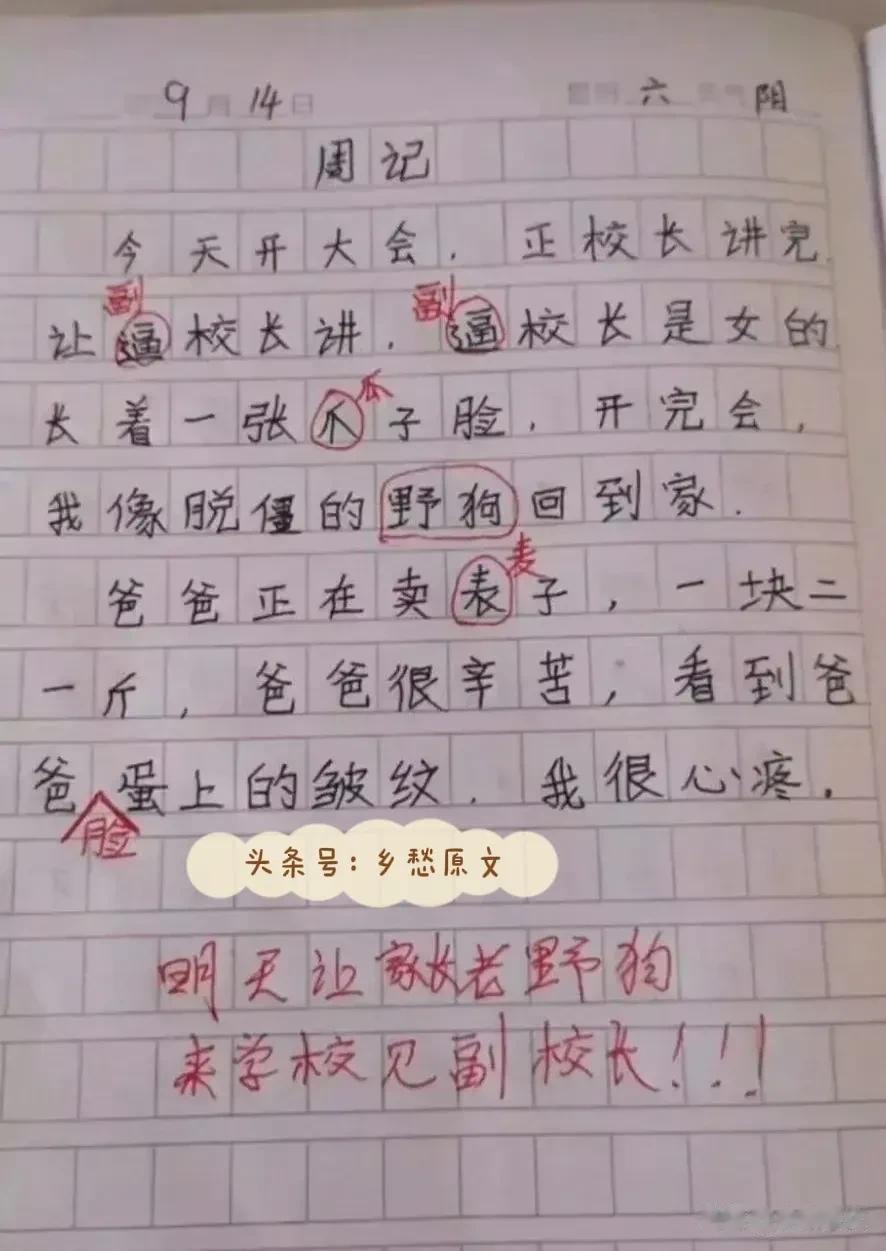 9月14日 星期六 天气阴
周记
今天开大会，正校长讲完
副 副
让逼校长讲．逼校长是女的
瓜
长着一张爪子脸，开完会，
我像脱僵的野狗回到家．
麦
爸爸正在卖表子，一块二
一斤，爸爸很辛苦，看到爸
爸蛋上的皱纹．我很心疼．
脸
头条号：乡愁原文
明天让家长老野狗
来学校见副校长！！！